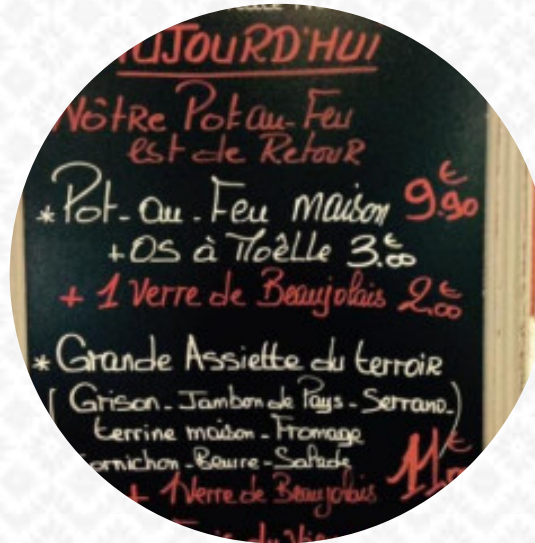 AUJOURD'HUI
Nôtre Pot au-Feu
est de Retour
*Pot-au-Feu maison 9.€90
+OS à Moëlle 3.€00
+ 1 Verre de Beaujolais 2.€00
* Grande Assiette du terroir
( Grison - Jambon de Pays - Serrano -)
terrine maison - Fromage
Cornichon - Beurre - Salade
+ 1 Verre de Beaujolais 11.€